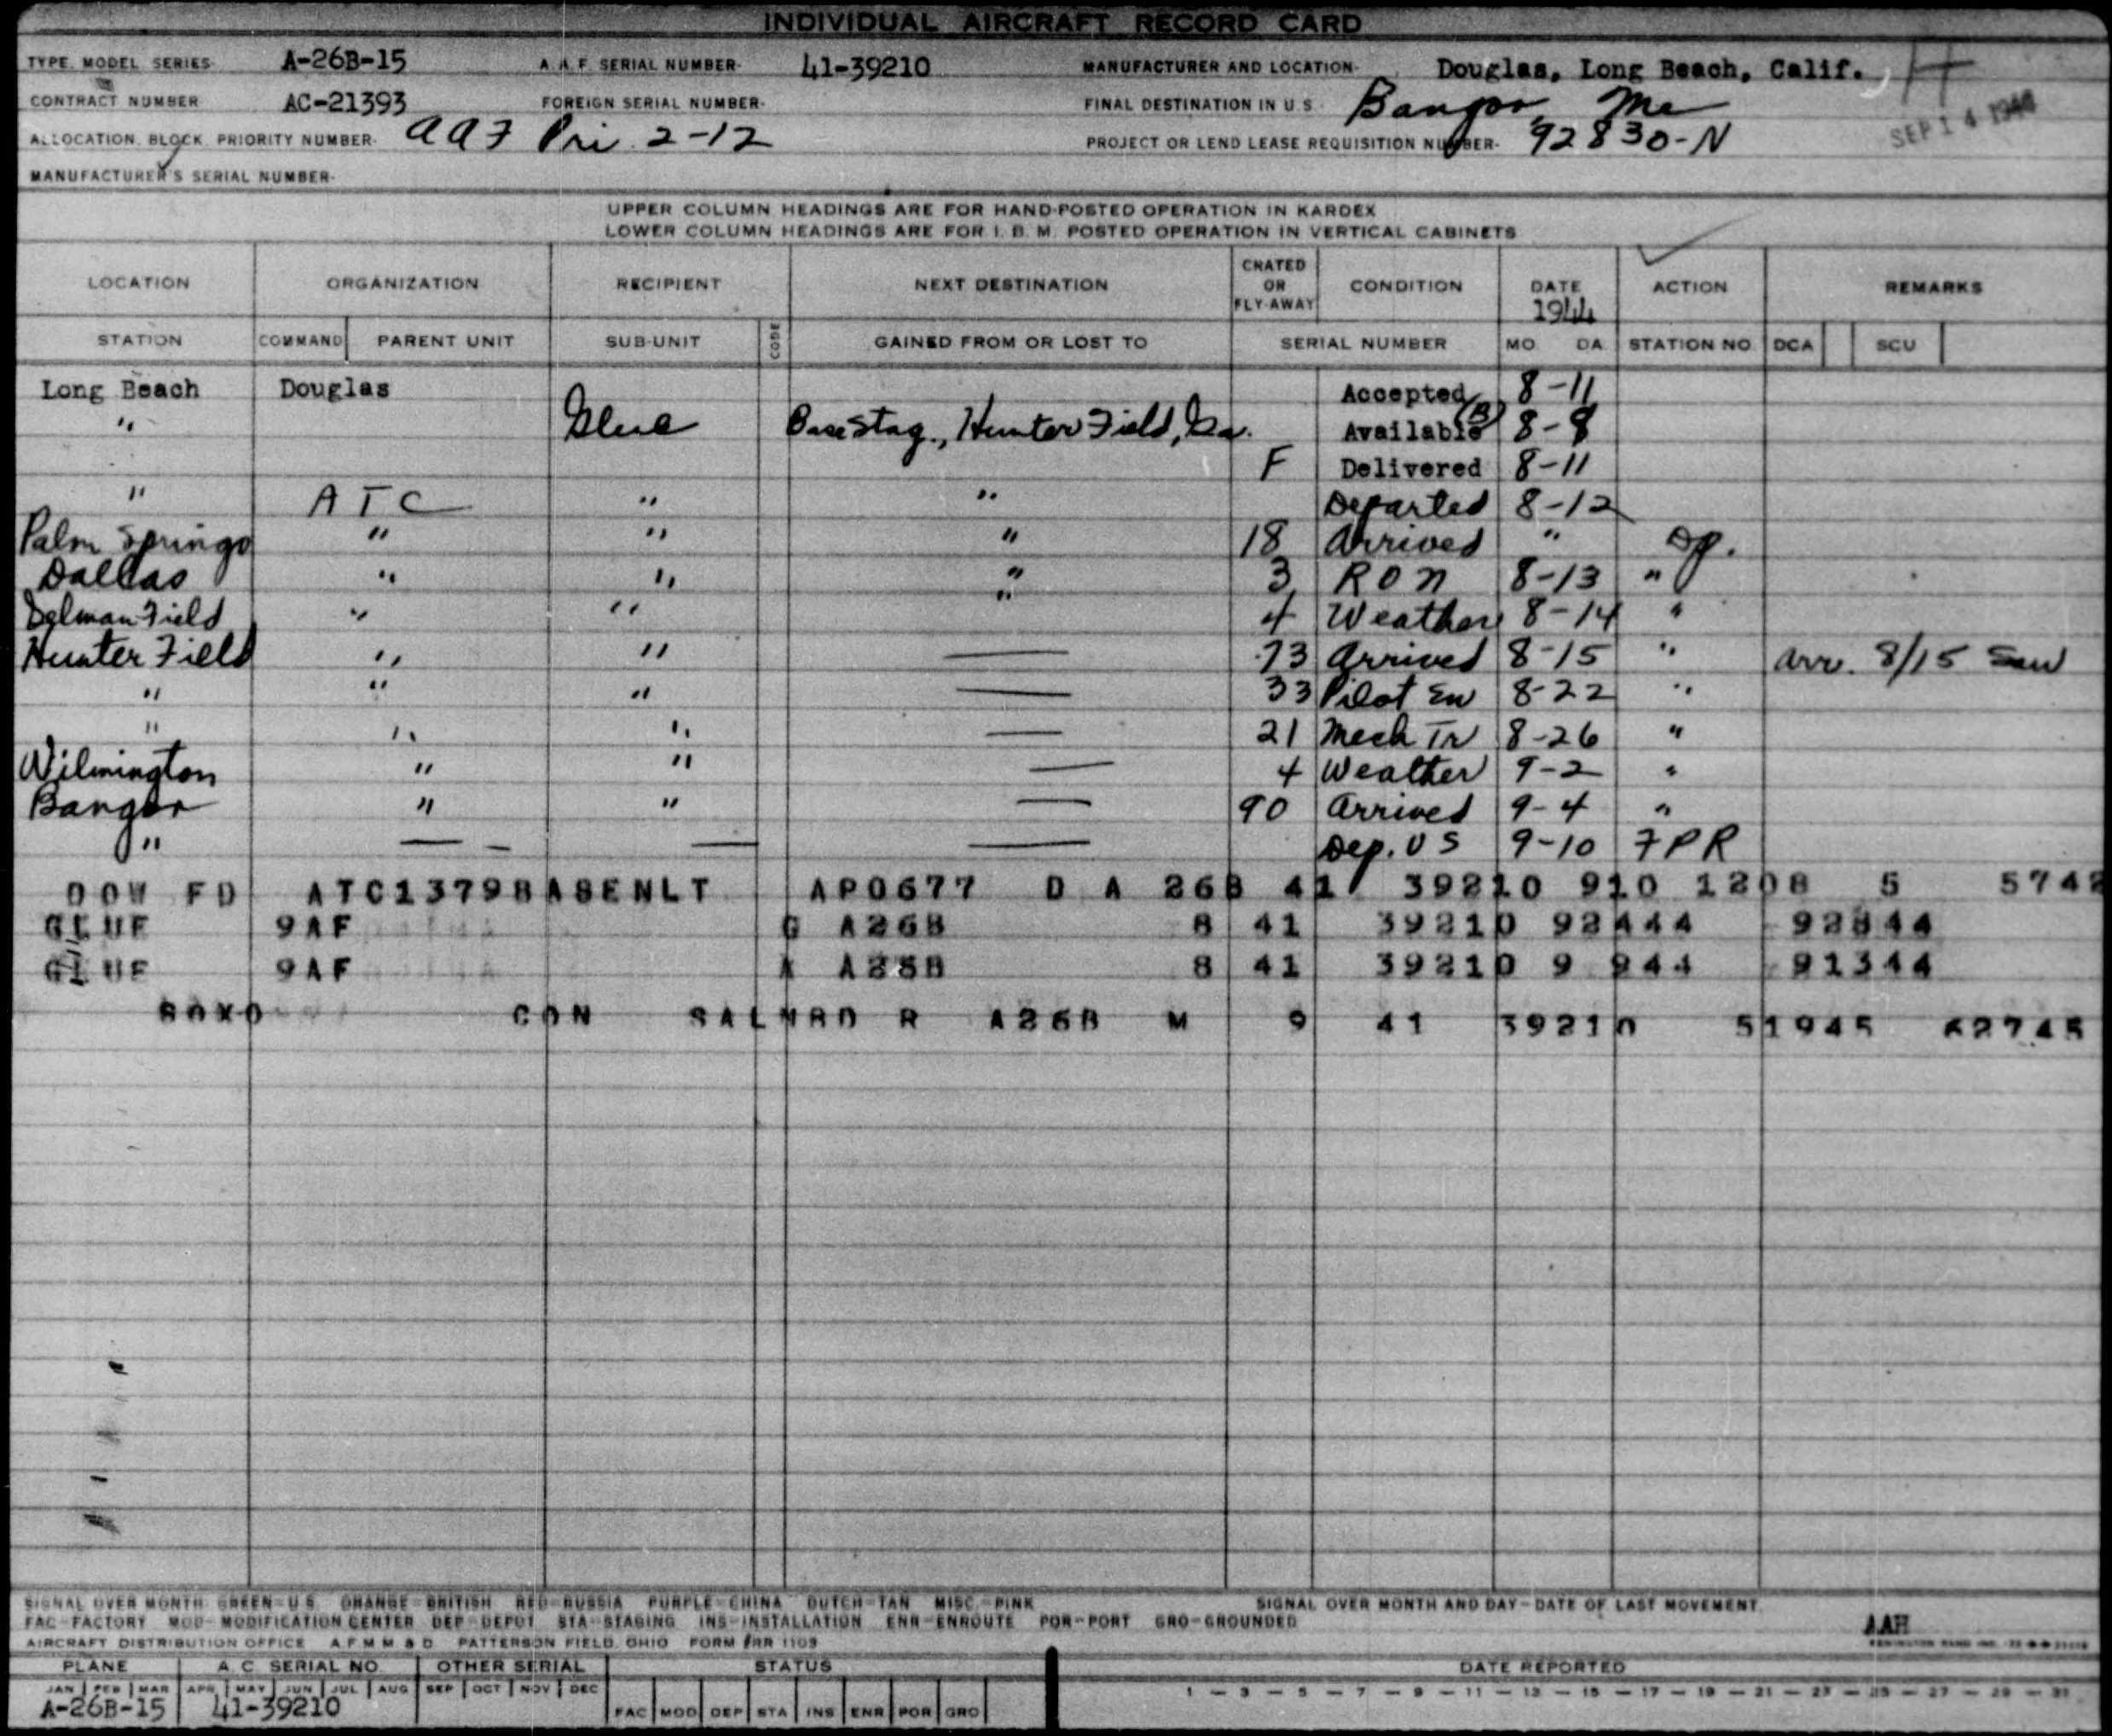 INDIVIDUAL AIRCRAFT RECORD CARD
TYPE, MODEL, SERIES- A-26B-15 A.A.F. SERIAL NUMBER- 41-39210 MANUFACTURER AND LOCATION- Douglas, Long Beach, Calif.
CONTRACT NUMBER AC-21393 FOREIGN SERIAL NUMBER- FINAL DESTINATION IN U.S. Bangor, Me SEP 14 1944
ALLOCATION, BLOCK, PRIORITY NUMBER- AAF Pri. 2-12 PROJECT OR LEND LEASE REQUISITION NUMBER- 92830-N
MANUFACTURER'S SERIAL NUMBER-
UPPER COLUMN HEADINGS ARE FOR HAND-POSTED OPERATION IN KARDEX
LOWER COLUMN HEADINGS ARE FOR I. B. M. POSTED OPERATION IN VERTICAL CABINETS
LOCATION ORGANIZATION RECIPIENT NEXT DESTINATION CRATED OR FLY-AWAY CONDITION DATE 1944 ACTION REMARKS
STATION COMMAND PARENT UNIT SUB-UNIT CODE GAINED FROM OR LOST TO SERIAL NUMBER MO DA STATION NO DCA SCU
Long Beach Douglas Accepted 8-11
" Glue Base Stag., Hunter Field, Ga. Available (B) 8-9
F Delivered 8-11
" ATC " " Departed 8-12
Palm Springs " " " 18 Arrived " Dp.
Dallas " " " 3 RON 8-13 "
Selman Field " " " 4 Weather 8-14 "
Hunter Field " " — 73 Arrived 8-15 " Arr. 8/15 Sav
" " " — 33 Pilot En 8-22 "
" " " — 21 Mech Tr 8-26 "
Wilmington " " — 4 Weather 9-2 "
Bangor " " — 90 Arrived 9-4 "
" — — — — Dep. US 9-10 FPR
DOW FD ATC1379BASENLT APO677 D A 26B 41 39210 910 1208 5 5742
GLUE 9AF G A26B 8 41 39210 92444 92844
GLUE 9AF A A26B 8 41 39210 9 944 91344
SOXO CON SALNBD R A26B M 9 41 39210 51945 62745
SIGNAL OVER MONTH GREEN-U.S. ORANGE-BRITISH RED-RUSSIA PURPLE-CHINA DUTCH-TAN MISC.-PINK SIGNAL OVER MONTH AND DAY-DATE OF LAST MOVEMENT
FAC-FACTORY MOD-MODIFICATION CENTER DEP-DEPOT STA-STAGING INS-INSTALLATION ENR-ENROUTE POR-PORT GRO-GROUNDED AAH
AIRCRAFT DISTRIBUTION OFFICE A.F.M.M. & D. PATTERSON FIELD, OHIO FORM #RR 1109
PLANE A.C. SERIAL NO. OTHER SERIAL STATUS DATE REPORTED
JAN FEB MAR APR MAY JUN JUL AUG SEP OCT NOV DEC 1 - 3 - 5 - 7 - 9 - 11 - 13 - 15 - 17 - 19 - 21 - 23 - 25 - 27 - 29 - 31
A-26B-15 41-39210 FAC MOD DEP STA INS ENR POR GRO